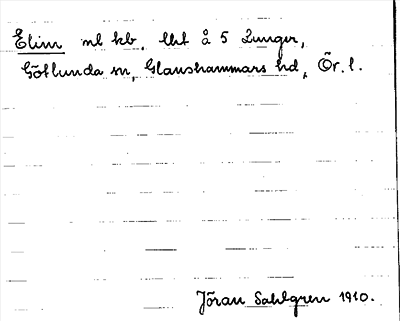 Elim nb kb, lht å 5 Lunger,
Götlunda sn, Glanshammars hd, Ör. l.
Jöran Sahlgren 1910.